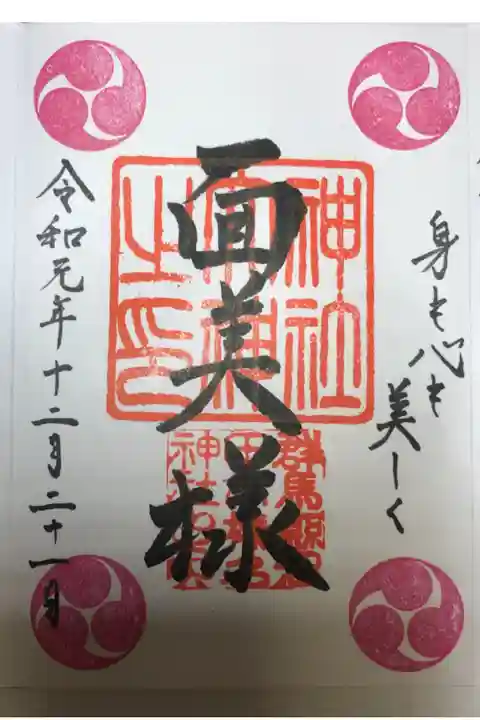 身も心も
美しく
面美様
令和元年十二月二十一日
神社
之印
群馬縣
神社